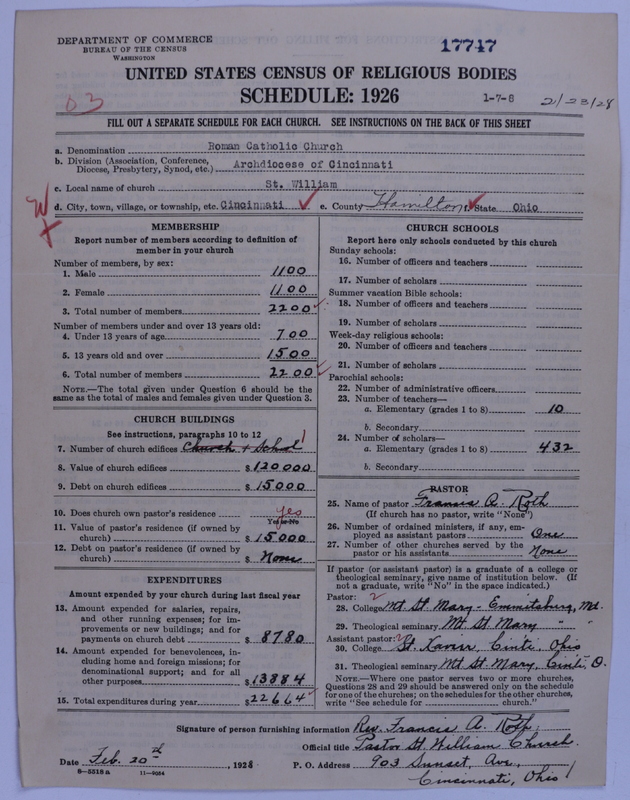 DEPARTMENT OF COMMERCE
BUREAU OF THE CENSUS
WASHINGTON
17747
UNITED STATES CENSUS OF RELIGIOUS BODIES
SCHEDULE: 1926
1-7-8
2/23/28
03
FILL OUT A SEPARATE SCHEDULE FOR EACH CHURCH. SEE INSTRUCTIONS ON THE BACK OF THIS SHEET
a. Denomination Roman Catholic Church
b. Division (Association, Conference, Diocese, Presbytery, Synod, etc.) Archdiocese of Cincinnati
c. Local name of church St. William
d. City, town, village, or township, etc. Cincinnati e. County Hamilton f. State Ohio
MEMBERSHIP
Report number of members according to definition of
member in your church
Number of members, by sex:
1. Male 1100
2. Female 1100
3. Total number of members 2200
Number of members under and over 13 years old:
4. Under 13 years of age 700
5. 13 years old and over 1500
6. Total number of members 2200
NOTE.—The total given under Question 6 should be the
same as the total of males and females given under Question 3.
CHURCH BUILDINGS
See instructions, paragraphs 10 to 12
7. Number of church edifices Church + School 1
8. Value of church edifices $120000
9. Debt on church edifices $15000
10. Does church own pastor's residence yes
Yes or No
11. Value of pastor's residence (if owned by
church) $15000
12. Debt on pastor's residence (if owned by
church) $ None
EXPENDITURES
Amount expended by your church during last fiscal year
13. Amount expended for salaries, repairs,
and other running expenses; for im-
provements or new buildings; and for
payments on church debt $ 8780
14. Amount expended for benevolences, in-
cluding home and foreign missions; for
denominational support; and for all
other purposes $13884
15. Total expenditures during year $22664
CHURCH SCHOOLS
Report here only schools conducted by this church
Sunday schools:
16. Number of officers and teachers
17. Number of scholars
Summer vacation Bible schools:
18. Number of officers and teachers
19. Number of scholars
Week-day religious schools:
20. Number of officers and teachers
21. Number of scholars
Parochial schools:
22. Number of administrative officers
23. Number of teachers—
a. Elementary (grades 1 to 8) 10
b. Secondary
24. Number of scholars—
a. Elementary (grades 1 to 8) 432
b. Secondary
PASTOR
25. Name of pastor Francis A. Roth
(If church has no pastor, write "None")
26. Number of ordained ministers, if any, em-
ployed as assistant pastors One
27. Number of other churches served by the
pastor or his assistants None
If pastor (or assistant pastor) is a graduate of a college or
theological seminary, give name of institution below. (If
not a graduate, write "No" in the space indicated.)
Pastor: 2
28. College Mt St. Mary - Emmitsburg, Md.
29. Theological seminary Mt St. Mary " "
Assistant pastor: 2
30. College St. Xavier, Cinti, Ohio
31. Theological seminary Mt St. Mary, Cinti, O.
NOTE.—Where one pastor serves two or more churches,
Questions 28 and 29 should be answered only on the schedule
for one of the churches; on the schedules for the other churches,
write "See schedule for church."
Signature of person furnishing information Rev. Francis A. Roth
Official title Pastor St. William Church.
Date Feb. 20th, 1928 P. O. Address 903 Sunset, Ave.,
8—5318 a 11—9054
Cincinnati, Ohio